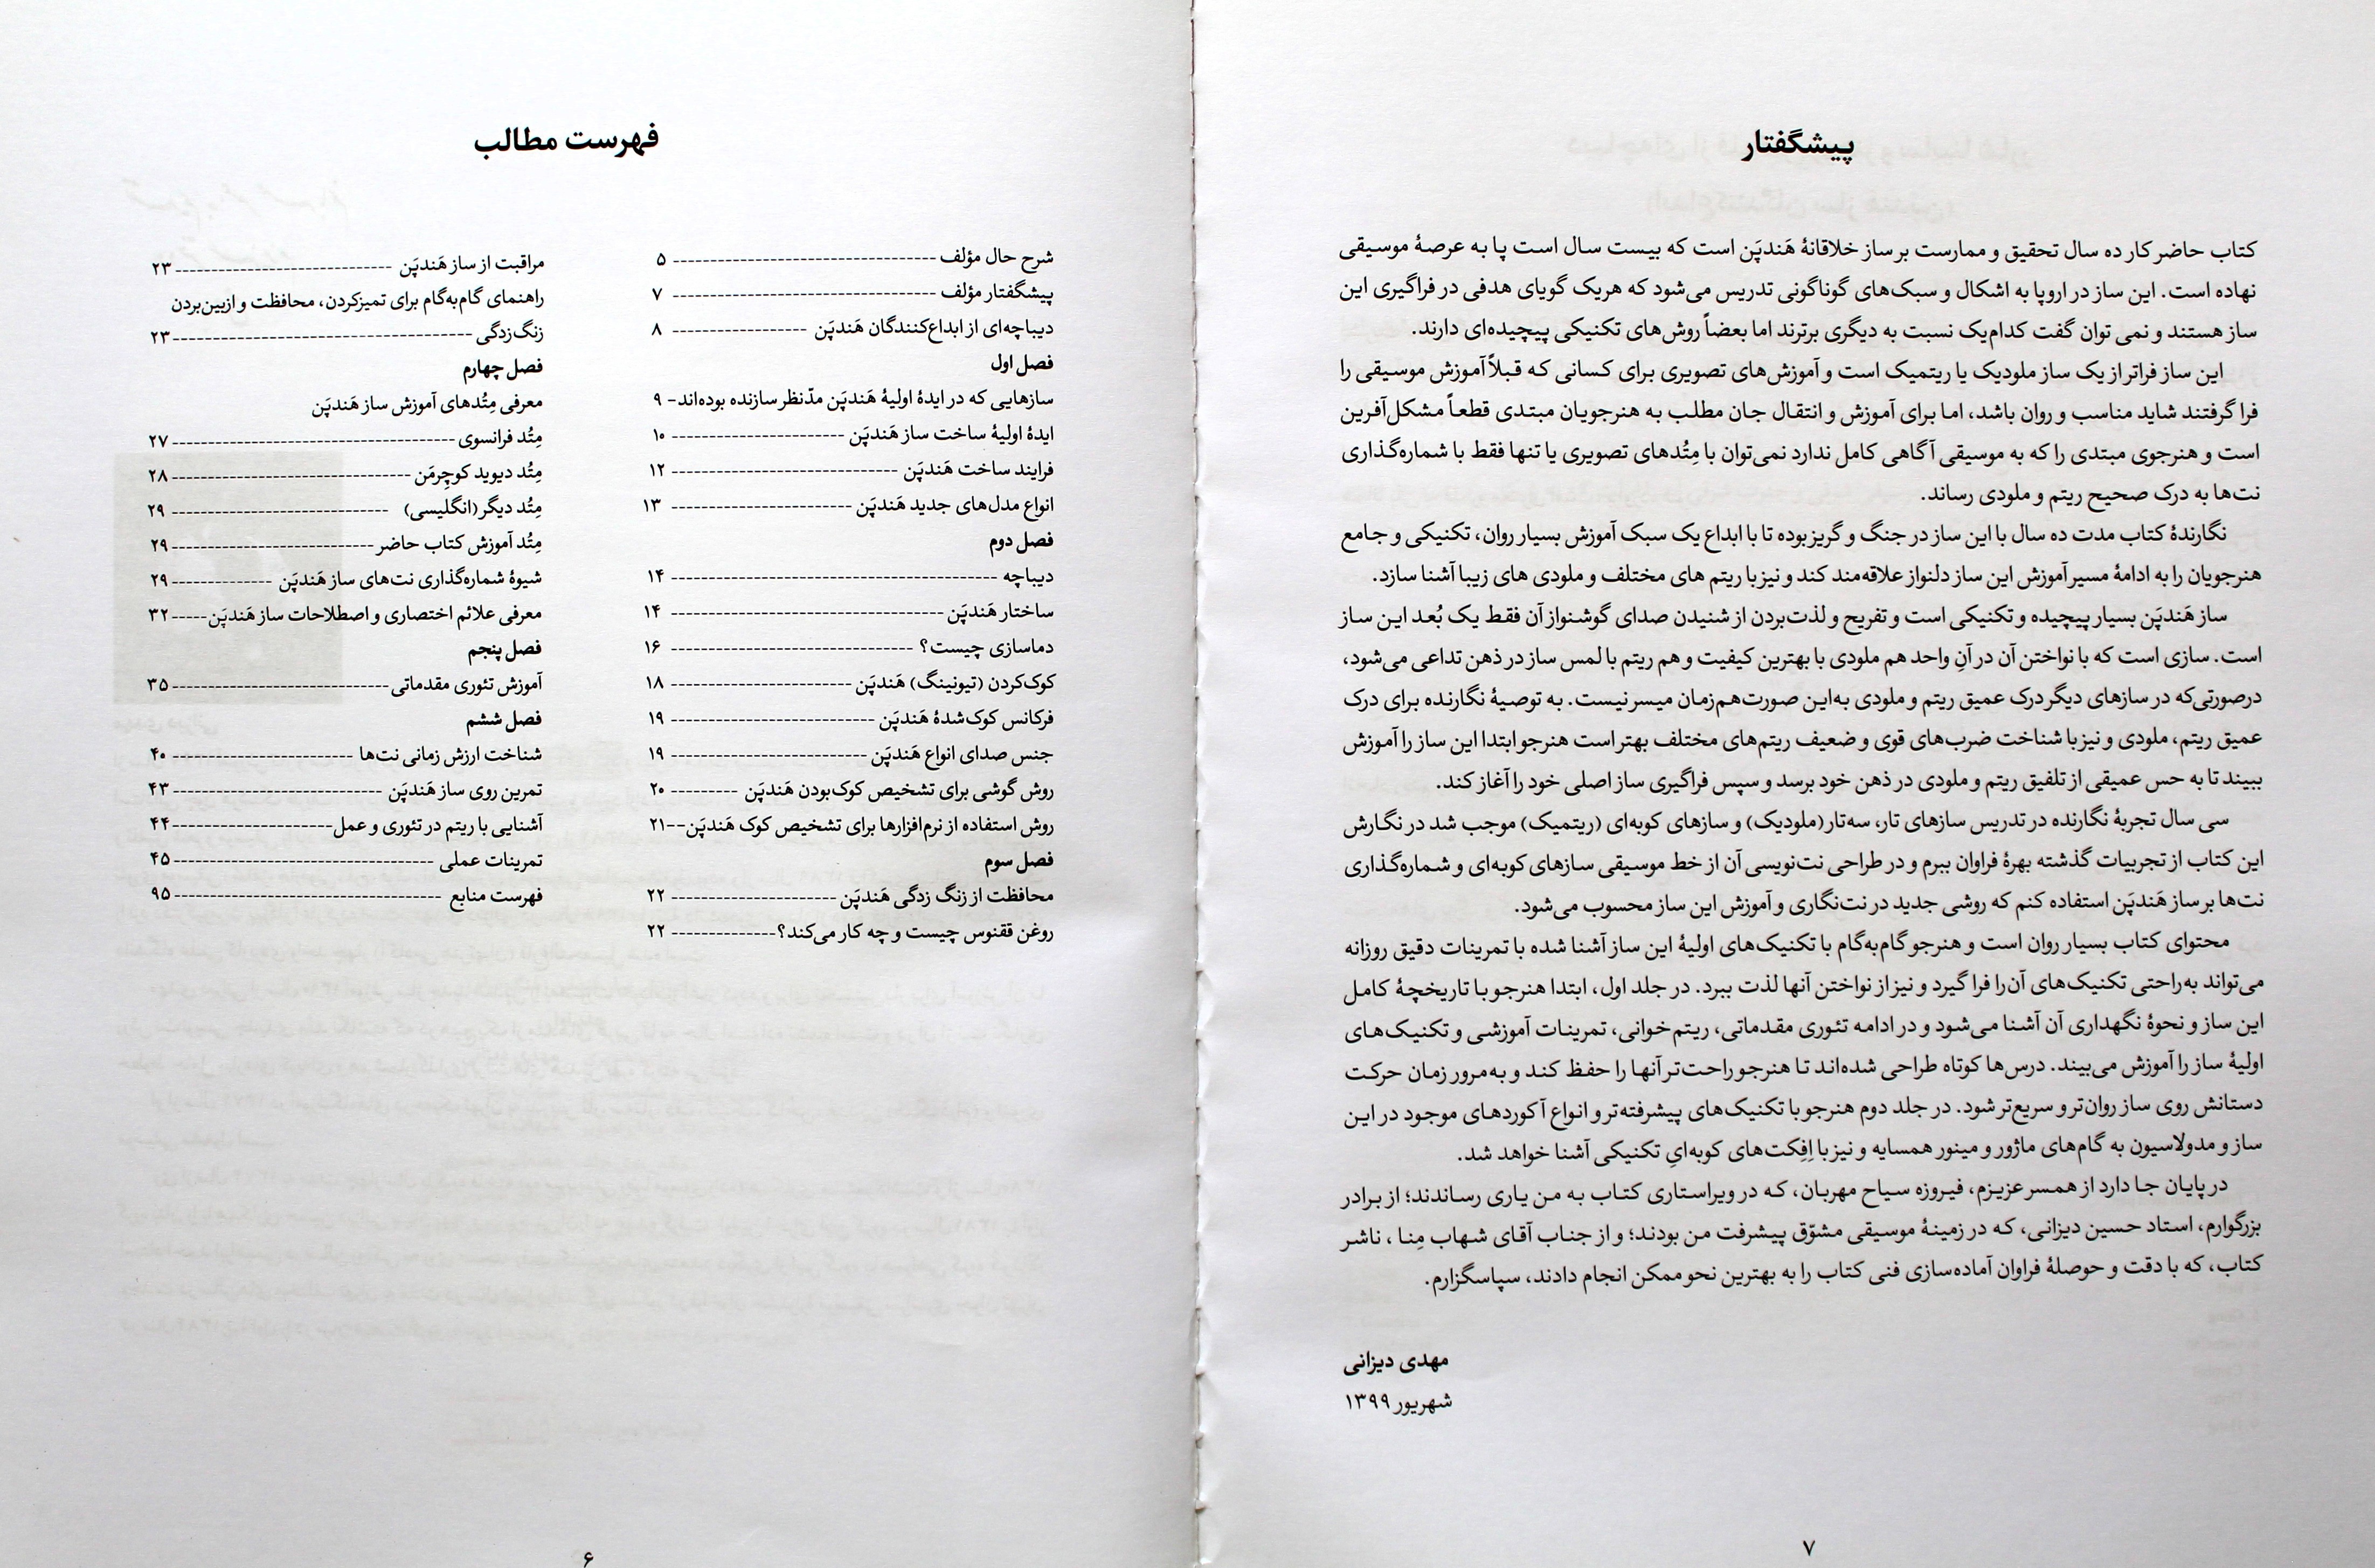 فهرست مطالب
شرح حال مؤلف ------------------------------------ ۵
پیشگفتار مؤلف ------------------------------------ ۷
دیباچه‌ای از ابداع‌کنندگان هَندپَن ------------------ ۸
فصل اول
سازهایی که در ایدهٔ اولیهٔ هَندپَن مدّنظر سازنده بوده‌اند- ۹
ایدهٔ اولیهٔ ساخت ساز هَندپَن ------------------------ ۱۰
فرایند ساخت هَندپَن ------------------------------- ۱۲
انواع مدل‌های جدید هَندپَن ------------------------- ۱۳
فصل دوم
دیباچه --------------------------------------------- ۱۴
ساختار هَندپَن ------------------------------------- ۱۴
دماسازی چیست؟ --------------------------------- ۱۶
کوک‌کردن (تیونینگ) هَندپَن ------------------------- ۱۸
فرکانس کوک‌شدهٔ هَندپَن ---------------------------- ۱۹
جنس صدای انواع هَندپَن --------------------------- ۱۹
روش گوشی برای تشخیص کوک‌بودن هَندپَن --------- ۲۰
روش استفاده از نرم‌افزارها برای تشخیص کوک هَندپَن--۲۱
فصل سوم
محافظت از زنگ زدگی هَندپَن ----------------------- ۲۲
روغن ققنوس چیست و چه کار می‌کند؟-------------- ۲۲
مراقبت از ساز هَندپَن ------------------------------ ۲۳
راهنمای گام‌به‌گام برای تمیزکردن، محافظت و ازبین‌بردن
زنگ‌زدگی-----------------------------------------۲۳
فصل چهارم
معرفی مِتُدهای آموزش ساز هَندپَن
مِتُد فرانسوی--------------------------------------- ۲۷
مِتُد دیوید کوچِرمَن ---------------------------------۲۸
مِتُد دیگر(انگلیسی) ------------------------------ ۲۹
مِتُد آموزش کتاب حاضر----------------------------۲۹
شیوهٔ شماره‌گذاری نت‌های ساز هَندپَن --------------۲۹
معرفی علائم اختصاری و اصطلاحات ساز هَندپَن-----۳۲
فصل پنجم
آموزش تئوری مقدماتی------------------------------۳۵
فصل ششم
شناخت ارزش زمانی نت‌ها ------------------------- ۴۰
تمرین روی ساز هَندپَن ----------------------------- ۴۳
آشنایی با ریتم در تئوری و عمل----------------------۴۴
تمرینات عملی ------------------------------------ ۴۵
فهرست منابع ------------------------------------- ۹۵
۶
پیشگفتار
کتاب حاضر کار ده سال تحقیق و ممارست بر ساز خلاقانهٔ هَندپَن است که بیست سال است پا به عرصهٔ موسیقی
نهاده است. این ساز در اروپا به اشکال و سبک‌های گوناگونی تدریس می‌شود که هریک گویای هدفی در فراگیری این
ساز هستند و نمی توان گفت کدام‌یک نسبت به دیگری برترند اما بعضاً روش‌های تکنیکی پیچیده‌ای دارند.
این ساز فراتر از یک ساز ملودیک یا ریتمیک است و آموزش‌های تصویری برای کسانی که قبلاً آموزش موسیقی را
فرا گرفتند شاید مناسب و روان باشد، اما برای آموزش و انتقال جان مطلب به هنرجویان مبتدی قطعاً مشکل‌آفرین
است و هنرجوی مبتدی را که به موسیقی آگاهی کامل ندارد نمی‌توان با مِتُدهای تصویری یا تنها فقط با شماره‌گذاری
نت‌ها به درک صحیح ریتم و ملودی رساند.
نگارندهٔ کتاب مدت ده سال با این ساز در جنگ و گریز بوده تا با ابداع یک سبک آموزش بسیار روان، تکنیکی و جامع
هنرجویان را به ادامهٔ مسیر آموزش این ساز دلنواز علاقه‌مند کند و نیز با ریتم های مختلف و ملودی های زیبا آشنا سازد.
ساز هَندپَن بسیار پیچیده و تکنیکی است و تفریح و لذت‌بردن از شنیدن صدای گوشنواز آن فقط یک بُعد این ساز
است. سازی است که با نواختن آن در آنِ واحد هم ملودی با بهترین کیفیت و هم ریتم با لمس ساز در ذهن تداعی می‌شود،
درصورتی‌که در سازهای دیگر درک عمیق ریتم و ملودی به‌این صورت هم‌زمان میسر نیست. به توصیهٔ نگارنده برای درک
عمیق ریتم، ملودی و نیز با شناخت ضرب‌های قوی و ضعیف ریتم‌های مختلف بهتر است هنرجو ابتدا این ساز را آموزش
ببیند تا به حس عمیقی از تلفیق ریتم و ملودی در ذهن خود برسد و سپس فراگیری ساز اصلی خود را آغاز کند.
سی سال تجربهٔ نگارنده در تدریس سازهای تار، سه‌تار(ملودیک) و سازهای کوبه‌ای (ریتمیک) موجب شد در نگارش
این کتاب از تجربیات گذشته بهرهٔ فراوان ببرم و در طراحی نت‌نویسی آن از خط موسیقی سازهای کوبه‌ای و شماره‌گذاری
نت‌ها بر ساز هَندپَن استفاده کنم که روشی جدید در نت‌نگاری و آموزش این ساز محسوب می‌شود.
محتوای کتاب بسیار روان است و هنرجو گام‌به‌گام با تکنیک‌های اولیهٔ این ساز آشنا شده با تمرینات دقیق روزانه
می‌تواند به‌راحتی تکنیک‌های آن‌را فرا گیرد و نیز از نواختن آنها لذت ببرد. در جلد اول، ابتدا هنرجو با تاریخچهٔ کامل
این ساز و نحوهٔ نگهداری آن آشنا می‌شود و در ادامه تئوری مقدماتی، ریتم‌خوانی، تمرینات آموزشی و تکنیک‌های
اولیهٔ ساز را آموزش می‌بیند. درس‌ها کوتاه طراحی شده‌اند تا هنرجو راحت‌تر آنها را حفظ کند و به‌مرور زمان حرکت
دستانش روی ساز روان‌تر و سریع‌تر شود. در جلد دوم هنرجو با تکنیک‌های پیشرفته‌تر و انواع آکوردهای موجود در این
ساز و مدولاسیون به گام‌های ماژور و مینور همسایه و نیز با اِفِکت‌های کوبه‌ایِ تکنیکی آشنا خواهد شد.
در پایان جا دارد از همسر عزیزم، فیروزه سیاح مهربان، که در ویراستاری کتاب به من یاری رساندند؛ از برادر
بزرگوارم، استاد حسین دیزانی، که در زمینهٔ موسیقی مشوّق پیشرفت من بودند؛ و از جناب آقای شهاب مِنا ، ناشر
کتاب، که با دقت و حوصلهٔ فراوان آماده‌سازی فنی کتاب را به بهترین نحو ممکن انجام دادند، سپاسگزارم.
مهدی دیزانی
شهریور ۱۳۹۹
۷